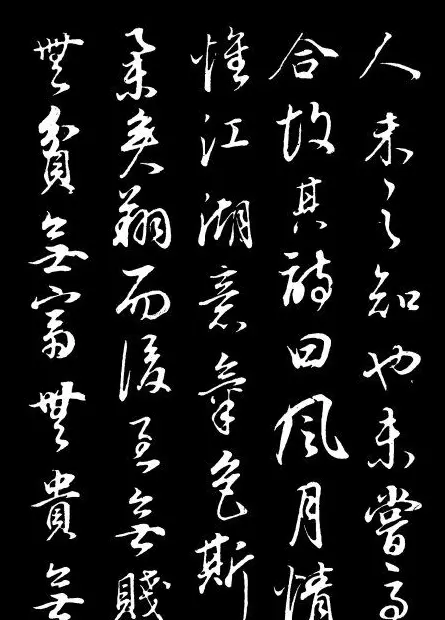 人未之知也未嘗
合故其詩曰風月情
惟江湖意氣色斯
舉矣翔而後至無賤
無貧無富無貴無